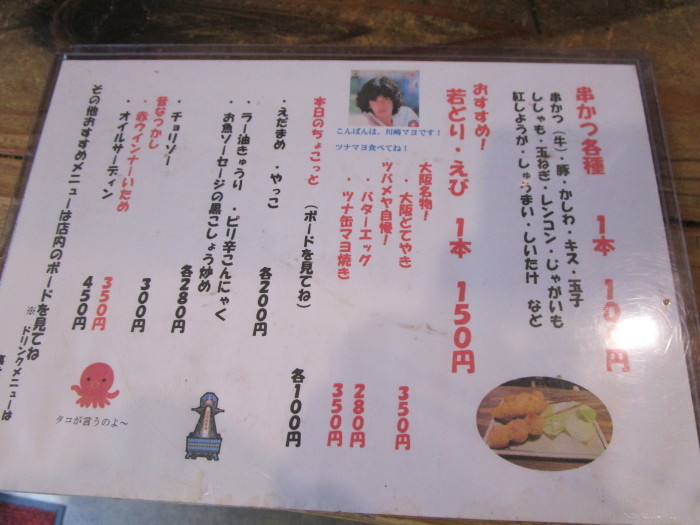 串かつ各種　1本　10円
串かつ（牛）・豚・かしわ・キス・玉子
ししゃも・玉ねぎ・レンコン・じゃがいも
紅しょうが・しゅうまい・しいたけ　など
おすすめ！
若どり・えび　1本　150円
こんばんは。川崎マヨです！
ツナマヨ食べてね！
大阪名物！
・大阪どてやき　350円
ツバメヤ自慢！
・バターエッグ　280円
・ツナ缶マヨ焼き　350円
本日のちょこっと　（ボードを見てね）　各100円
・えだまめ　・やっこ　各200円
・ラー油きゅうり　・ピリ辛こんにゃく
・お魚ソーセージの黒こしょう炒め　各280円
・チョリソー　300円
昔なつかし
・赤ウインナーいため　350円
・オイルサーディン　450円
その他おすすめメニューは店内のボードを見てね
※ドリンクメニューは
タコが言うのよ～